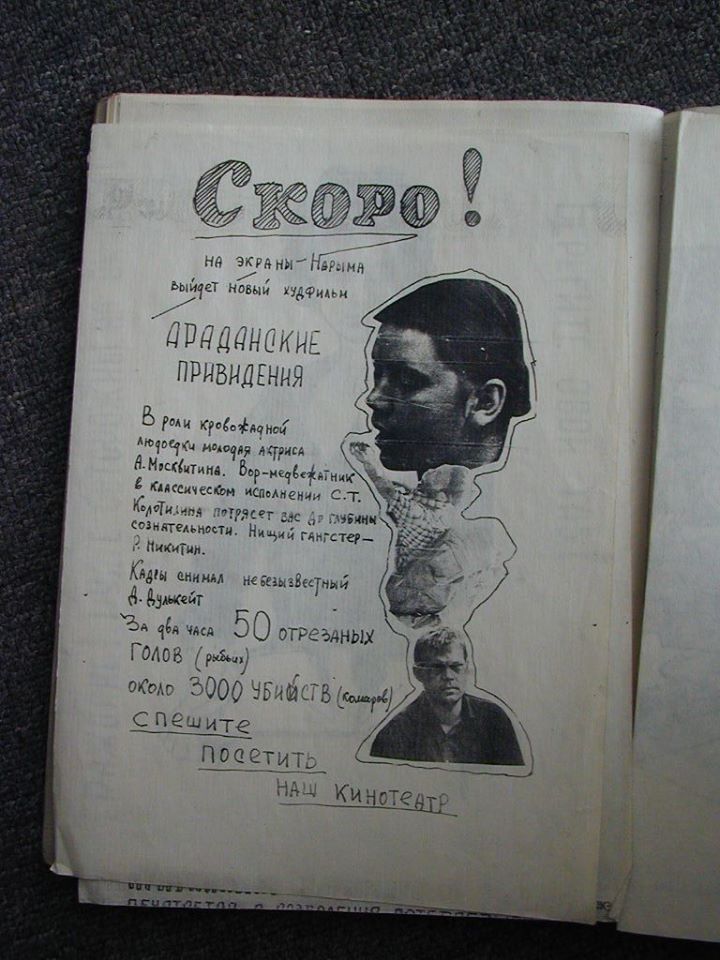 Скоро!
на экраны Нарыма
выйдет новый худфильм
АРАДАНСКИЕ
ПРИВИДЕНИЯ
В роли кровожадной
людоедки молодая актриса
А. Москвитина. Вор-медвежатник
в классическом исполнении С.Т.
Колотилина потрясет вас до глубины
сознательности. Нищий гангстер —
Р. Никитин.
Кадры снимал небезызвестный
Д. Дулькейт
За два часа 50 отрезаных
голов (рыбьих)
около 3000 убийств (комаров)
спешите
посетить
наш кинотеатр